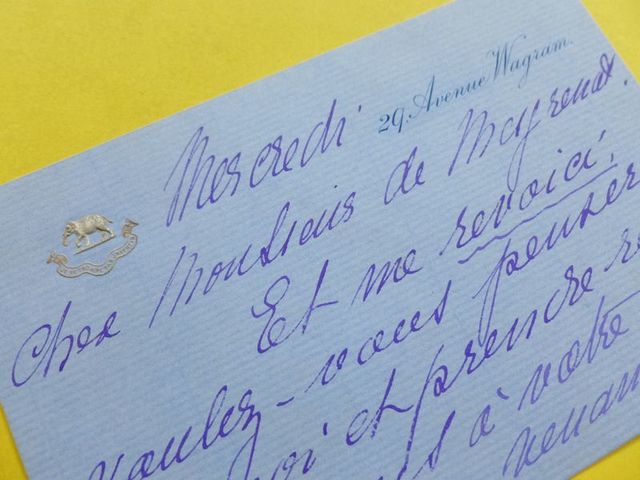 29. Avenue Wagram.
Mercredi
Cher Monsieur de Mayrenat.
Et me revoici,
voulez-vous penser
et prendre
à votre